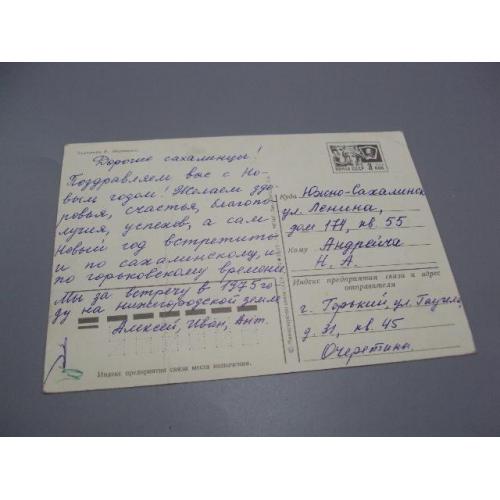 Дорогие сахалинцы!
Поздравляем вас с Но-
вым годом! Желаем здо-
ровья, счастья, благопо-
лучия, успехов, а сам
Новый год встретить
и по сахалинскому, и
по горьковскому времени
Мы за встречу в 1975 го-
ду на нижегородской земле
Алексей, Иван, Ант.
Индекс предприятия связи места назначения.
ПОЧТА СССР
Куда Южно-Сахалинск
ул. Ленина,
дом 174, кв. 55
Кому Андрейча
Н. А.
Индекс предприятия связи и адрес
отправителя
г. Горький, ул.
д. 31, кв. 45
Очеретина.